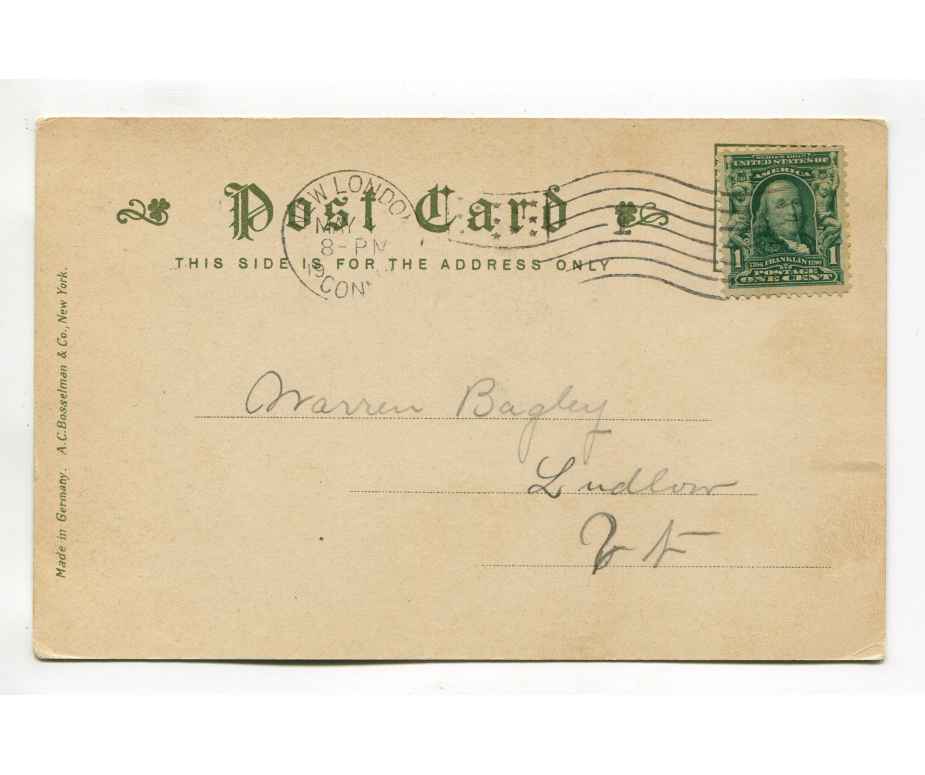 Post Card
THIS SIDE IS FOR THE ADDRESS ONLY
NEW LONDON
MAY
8-PM
19
CONN
SERIES 1902
UNITED STATES OF
AMERICA
1706 FRANKLIN 1790
1 POSTAGE 1
ONE CENT
Warren Bagley
Ludlow
Vt
Made in Germany. A.C.Bosselman & Co., New York.